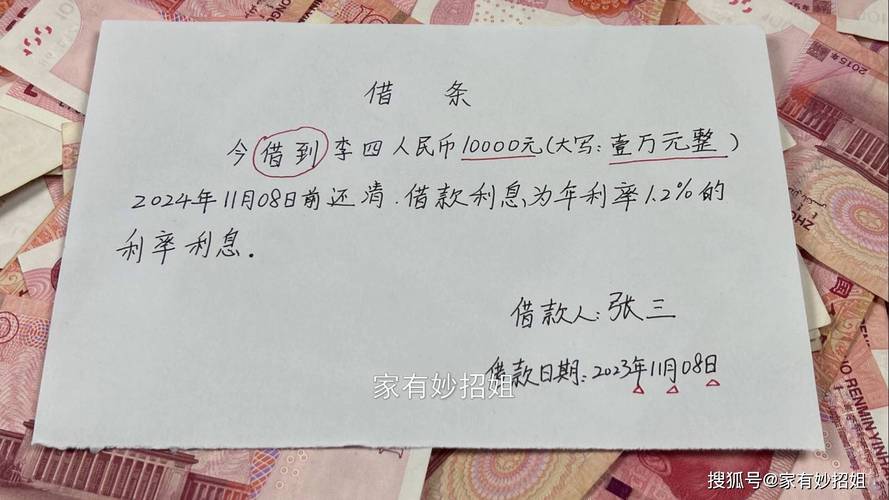 借 条
今借到李四人民币10000元(大写:壹万元整)
2024年11月08日前还清.借款利息为年利率1.2%的
利率利息.
借款人:张三
借款日期:2023年11月08日
家有妙招姐
搜狐号@家有妙招姐
2015年